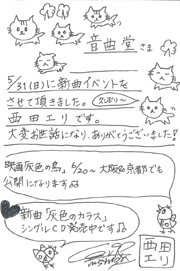 音曲堂さま
5/31(日)に新曲イベントを
させて頂きました。
西田エリです。
大変お世話になり、ありがとうございました!
映画「灰色の烏」6/20〜大阪&京都でも
公開になります♫
新曲「灰色のカラス」
シングルCD発売中です♫
西田
エリ